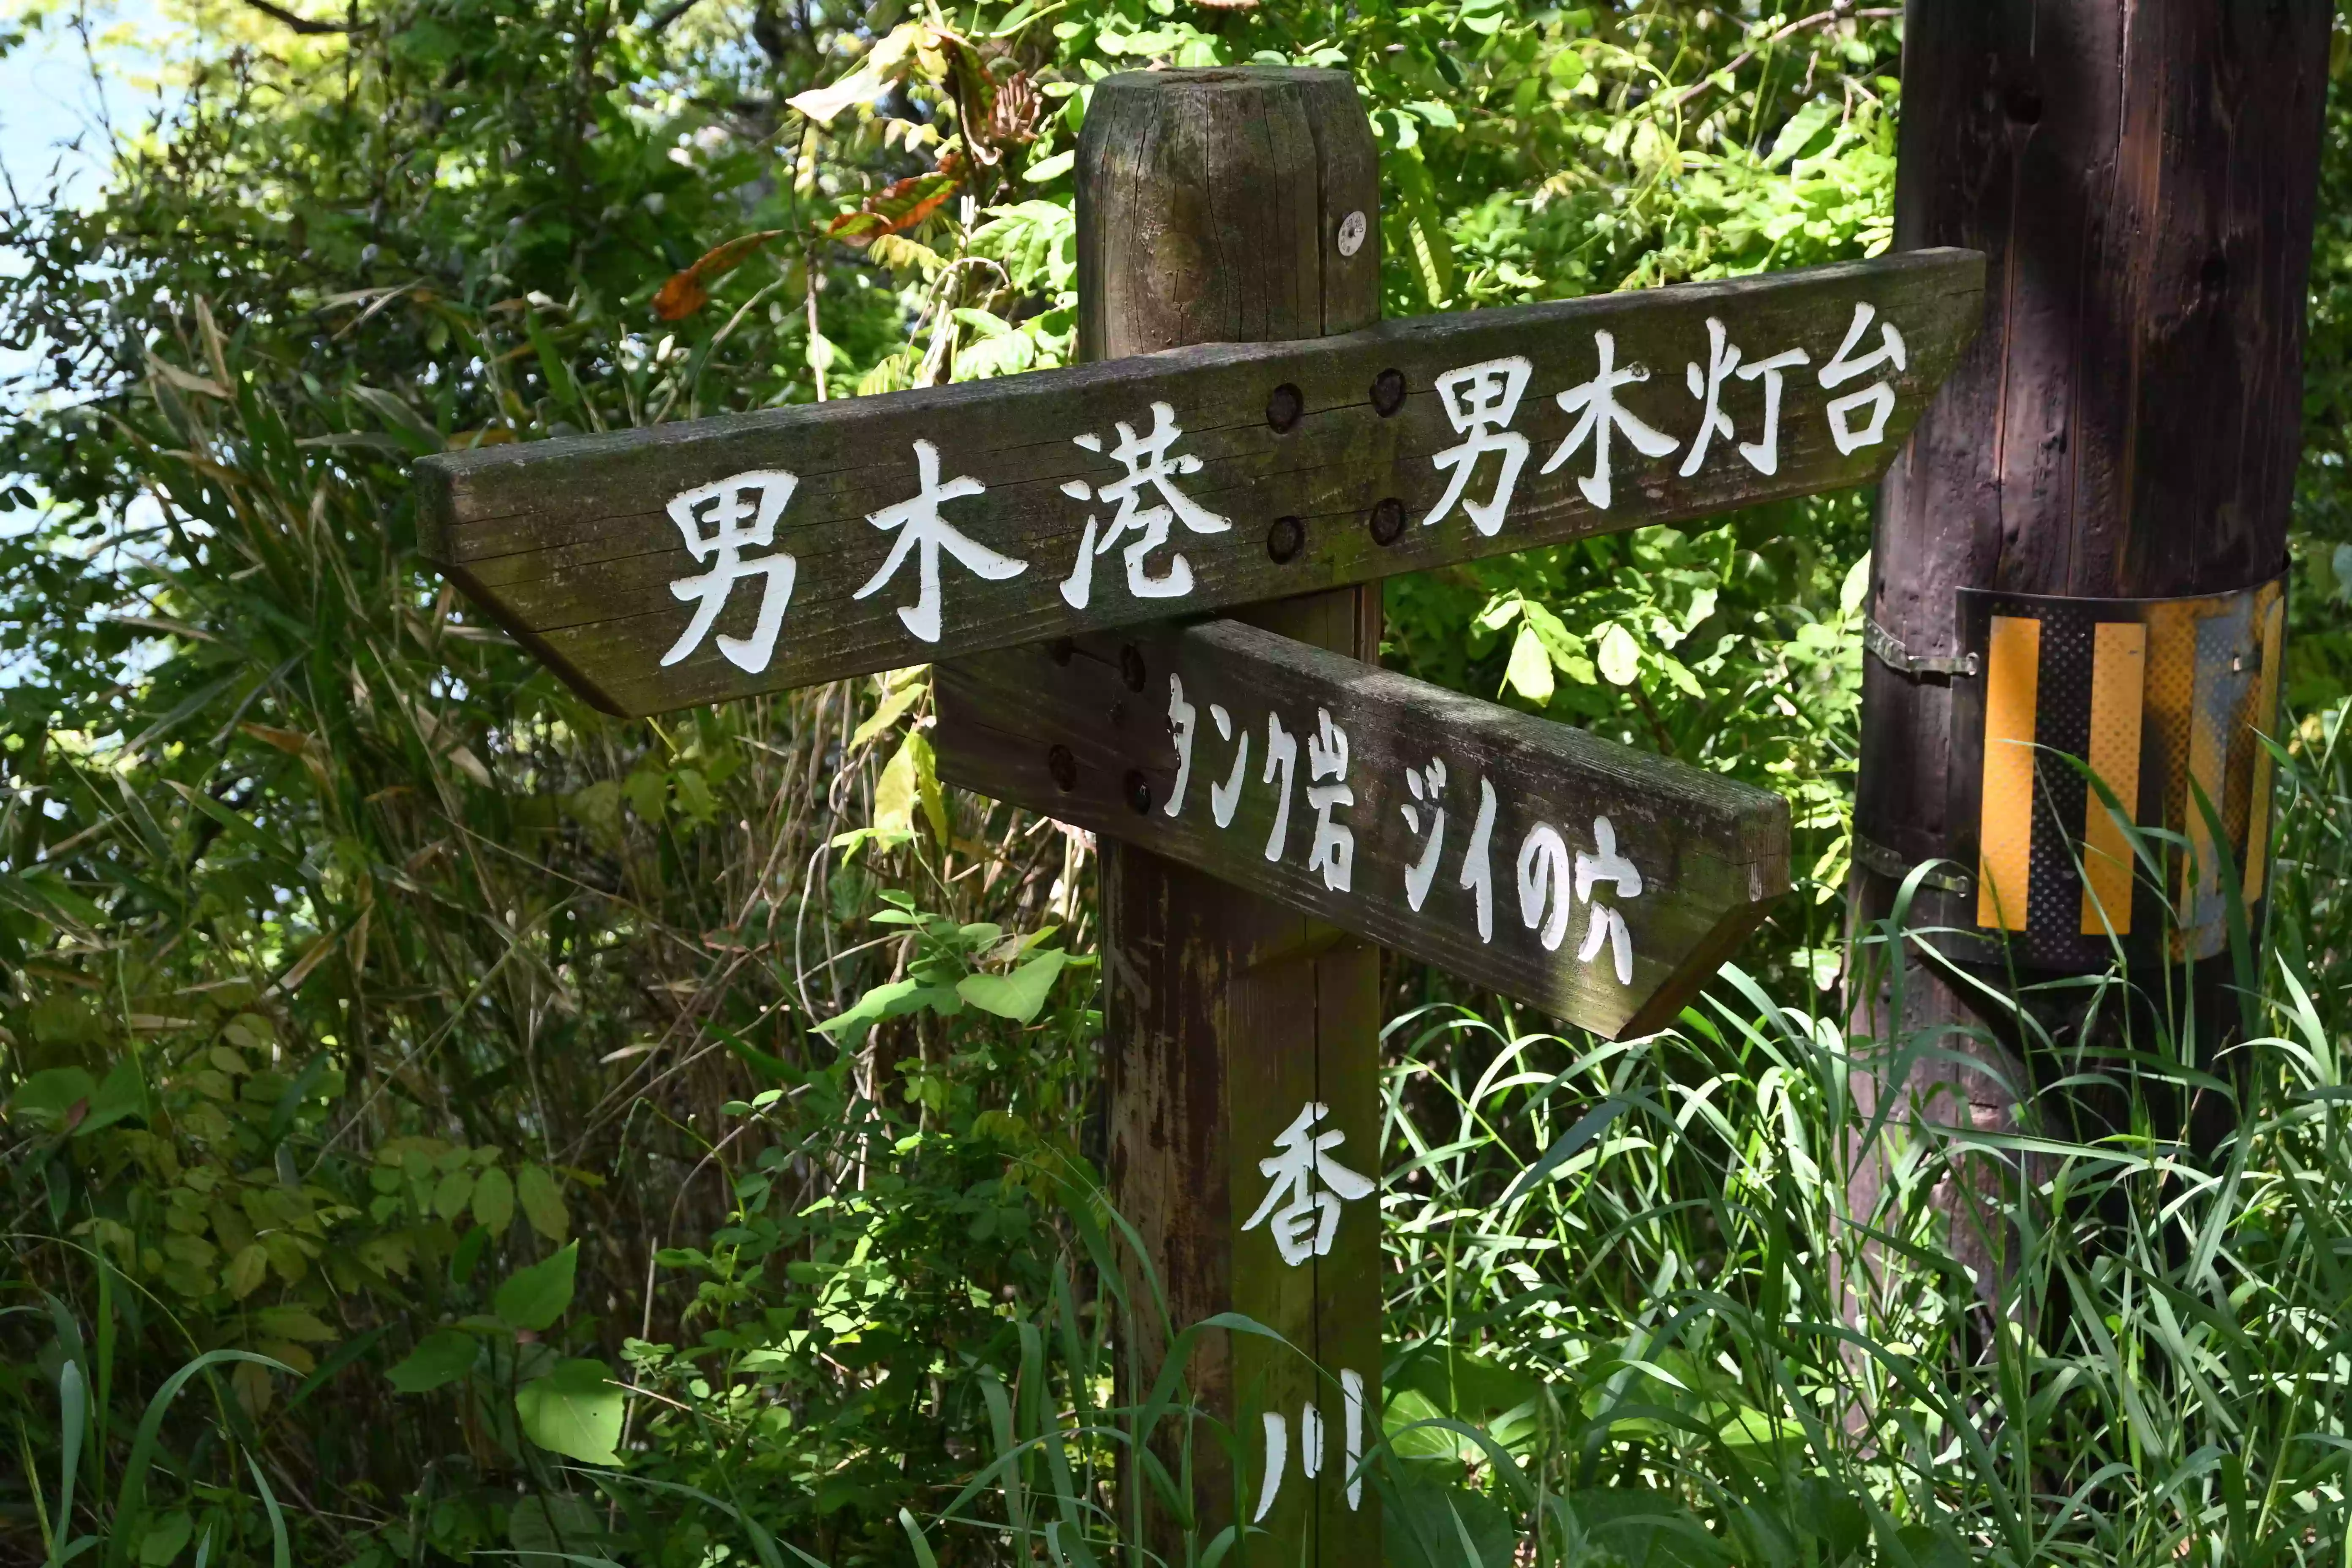 男木港 男木灯台
タンク岩 ジイの穴
香川